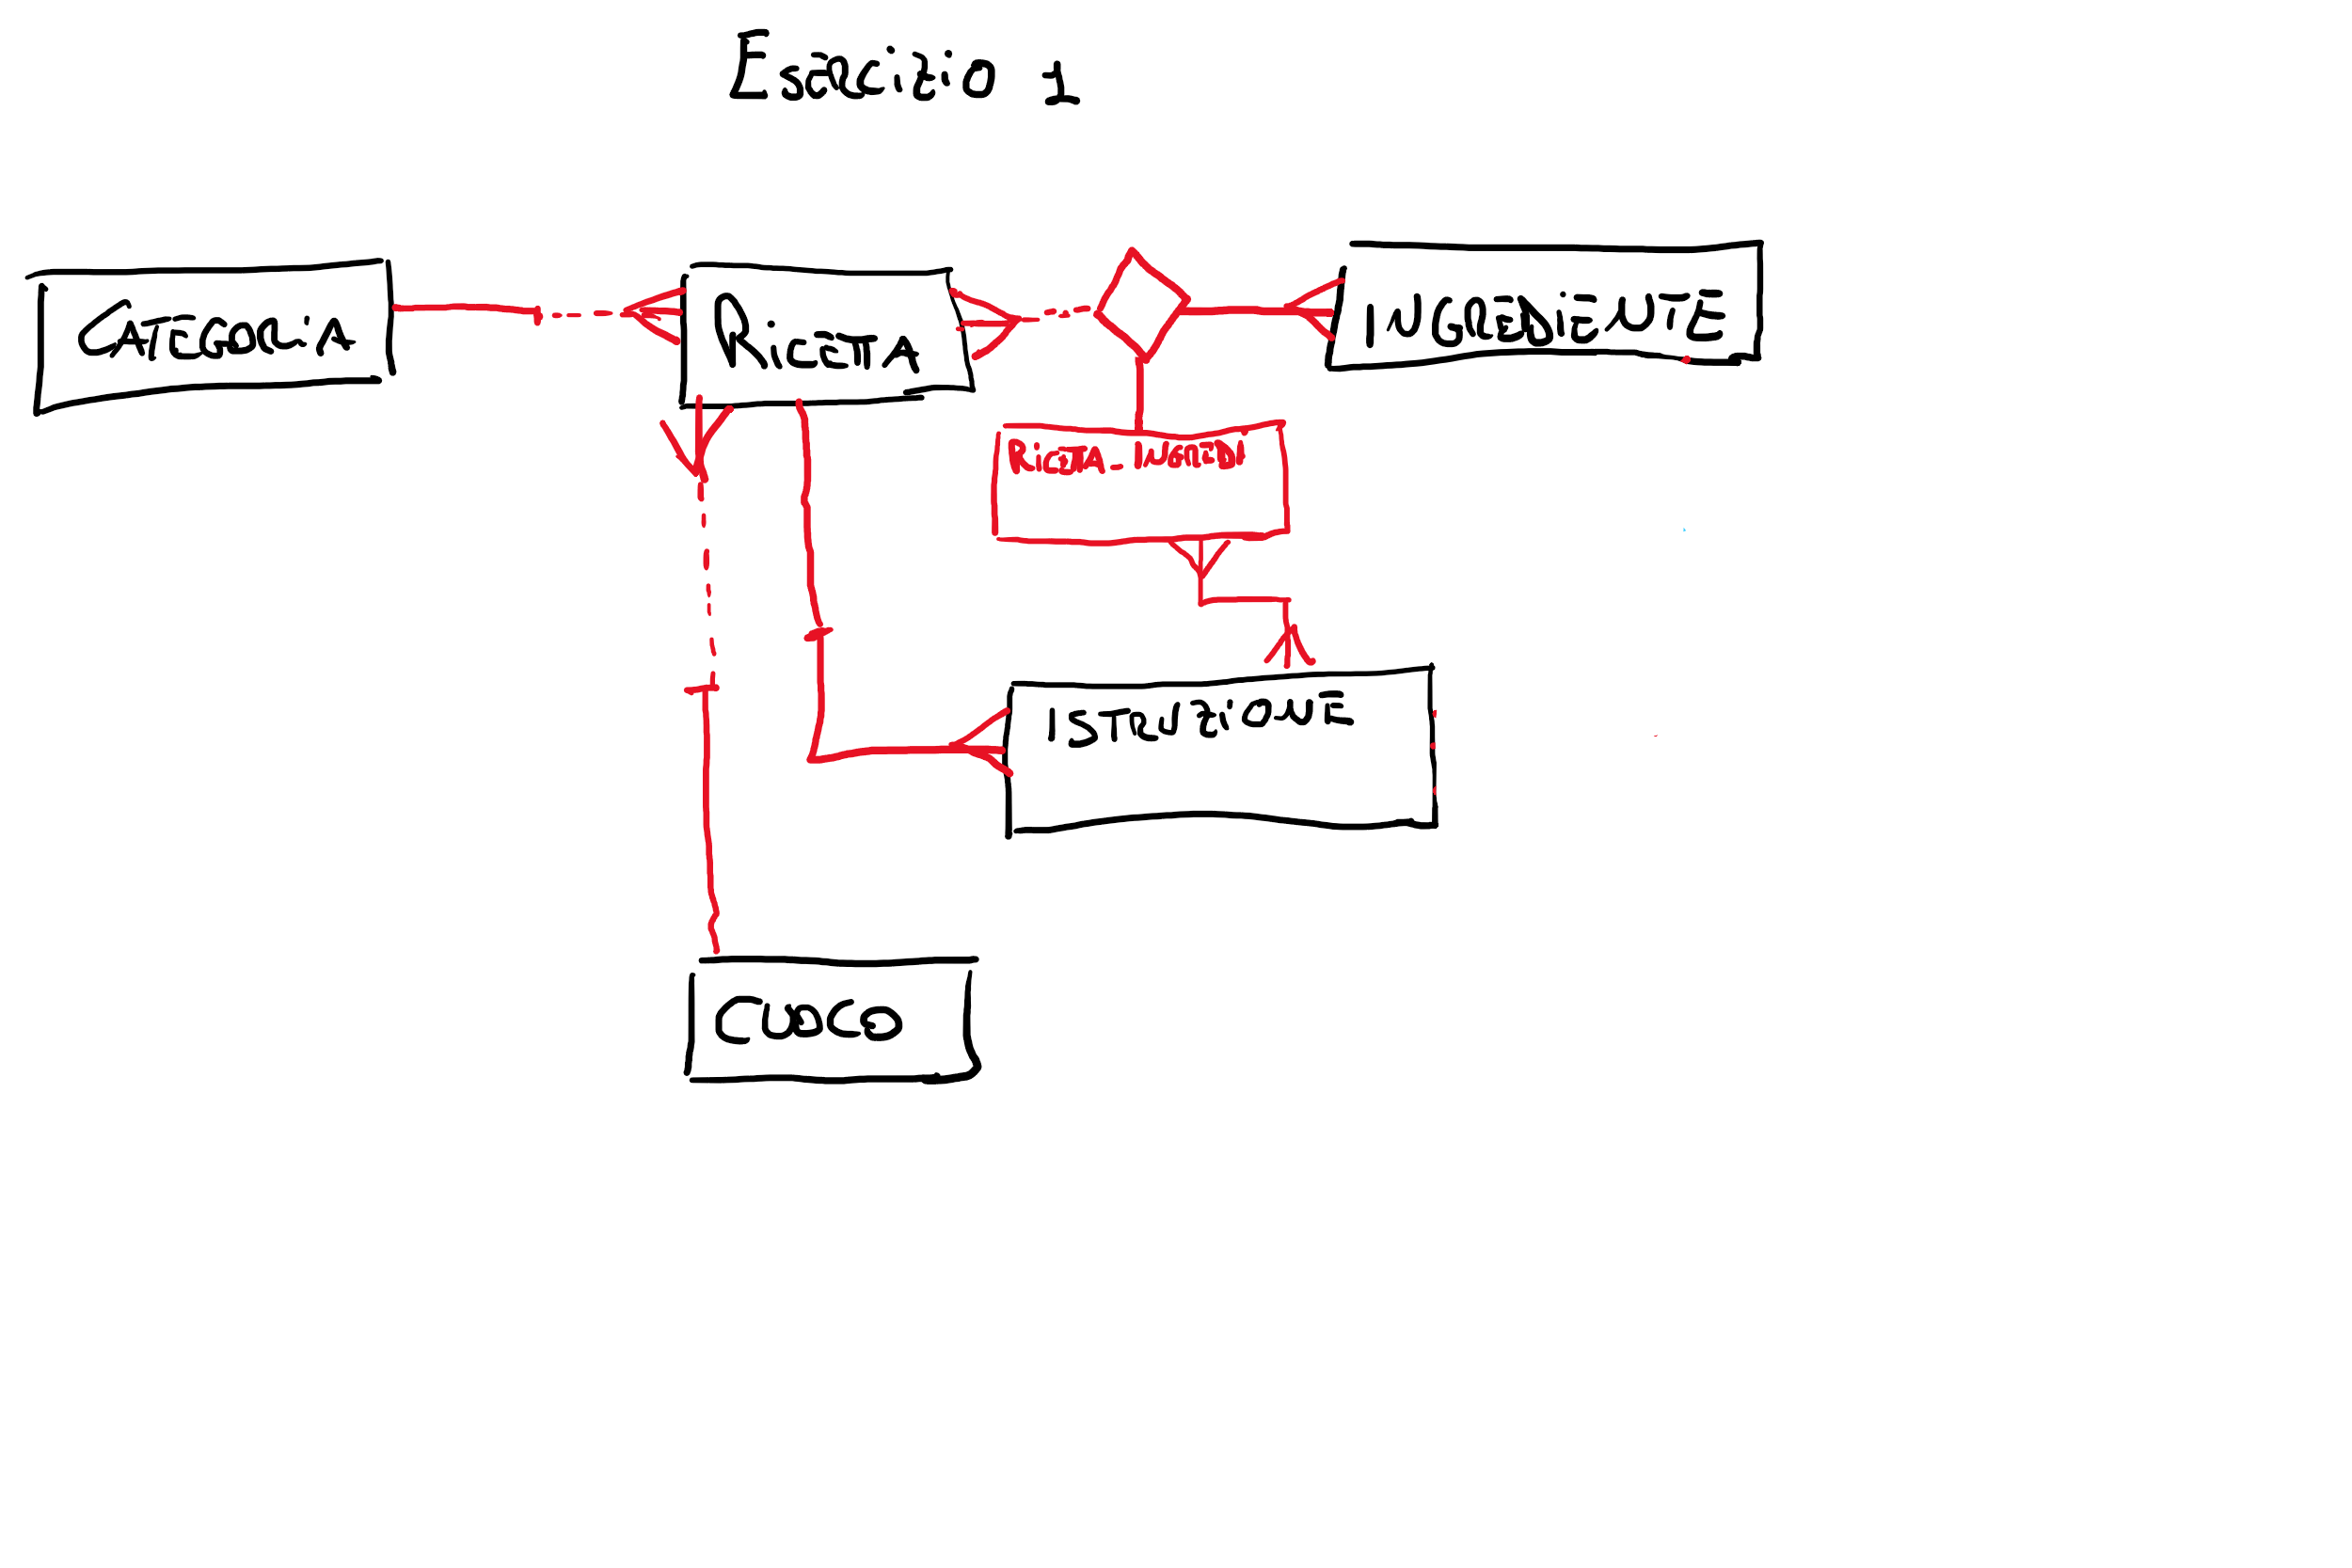 Esercizio 1
CATEGORIA
RiCETTA
INGREDiENTE
RiCETTA_INGRED
ISTRUZiONE
CUOCO